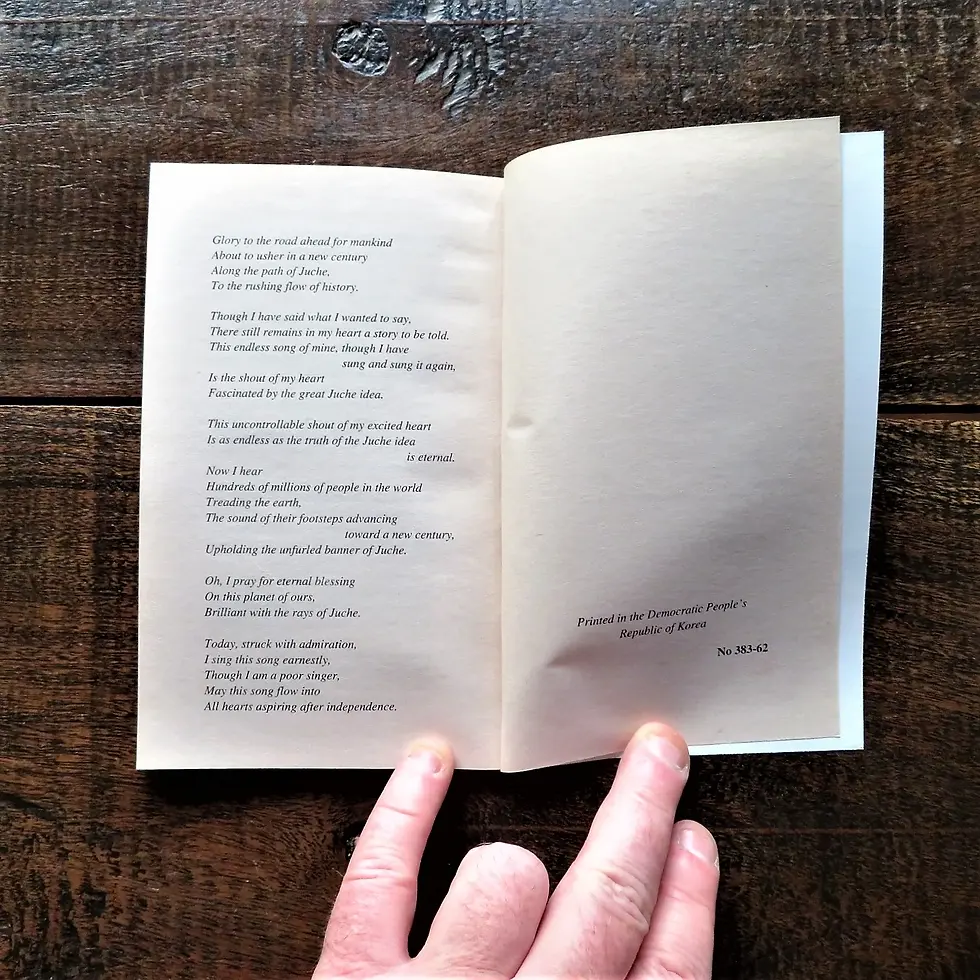 Glory to the road ahead for mankind
About to usher in a new century
Along the path of Juche,
To the rushing flow of history.
Though I have said what I wanted to say,
There still remains in my heart a story to be told.
This endless song of mine, though I have
sung and sung it again,
Is the shout of my heart
Fascinated by the great Juche idea.
This uncontrollable shout of my excited heart
Is as endless as the truth of the Juche idea
is eternal.
Now I hear
Hundreds of millions of people in the world
Treading the earth,
The sound of their footsteps advancing
toward a new century,
Upholding the unfurled banner of Juche.
Oh, I pray for eternal blessing
On this planet of ours,
Brilliant with the rays of Juche.
Today, struck with admiration,
I sing this song earnestly,
Though I am a poor singer,
May this song flow into
All hearts aspiring after independence.
Printed in the Democratic People's
Republic of Korea
No 383-62